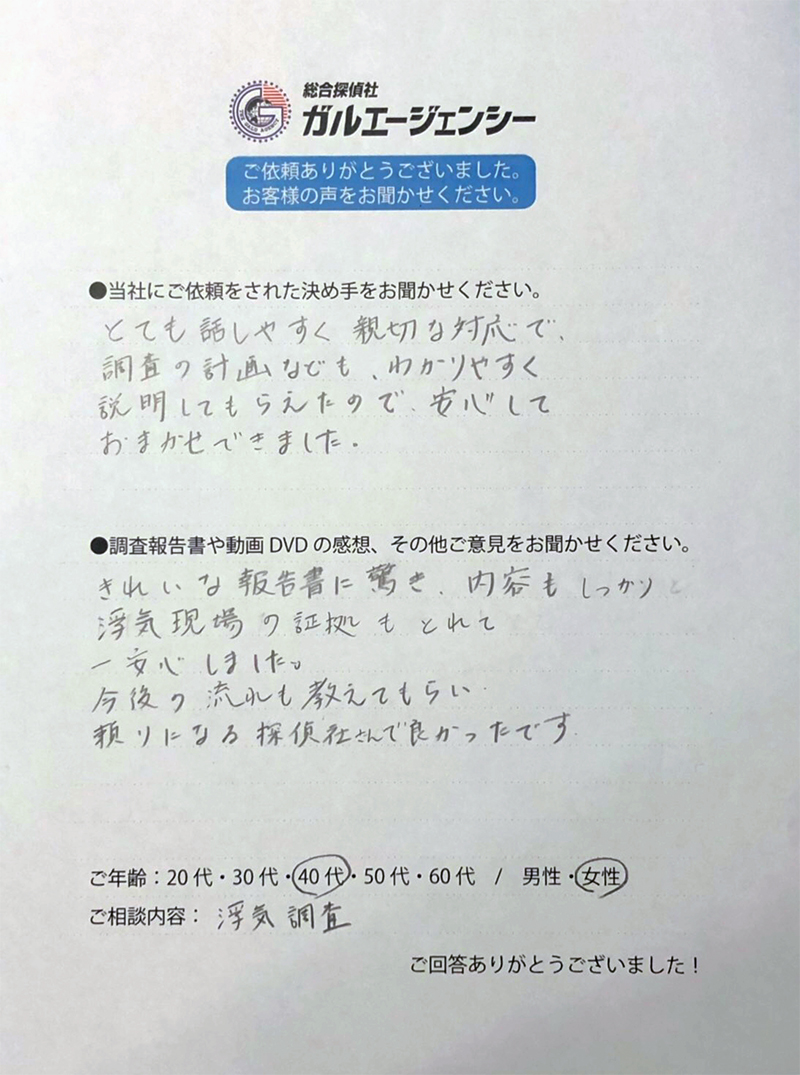 総合探偵社
ガルエージェンシー
ご依頼ありがとうございました。
お客様の声をお聞かせください。
●当社にご依頼をされた決め手をお聞かせください。
とても話しやすく親切な対応で、
調査の計画なども、わかりやすく
説明してもらえたので、安心して
おまかせできました。
●調査報告書や動画DVDの感想、その他ご意見をお聞かせください。
きれいな報告書に驚き、内容もしっかりと
浮気現場の証拠もとれて
一安心しました。
今後の流れも教えてもらい
頼りになる探偵社さんで良かったです
ご年齢：20代・30代・40代・50代・60代 / 男性・女性
ご相談内容： 浮気調査
ご回答ありがとうございました！